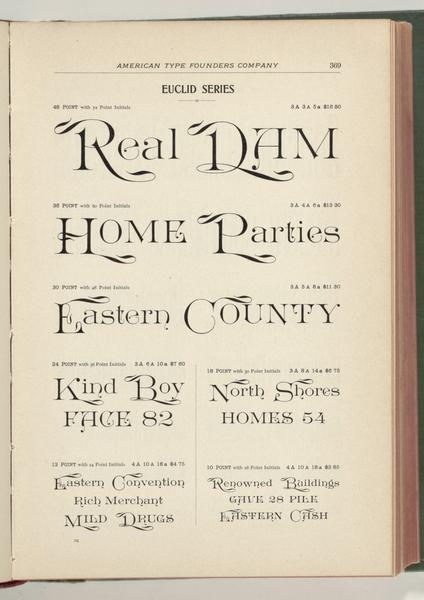 AMERICAN TYPE FOUNDERS COMPANY 369
EUCLID SERIES
48 POINT with 72 Point Initials 3 A 3 A 5 a $16 50
Real DAM
36 POINT with 60 Point Initials 3 A 4 A 6 a $13 30
HOME Parties
30 POINT with 48 Point Initials 3 A 5 A 8 a $11 30
Eastern COUNTY
24 POINT with 36 Point Initials 3 A 6 A 10 a $7 60
Kind Boy
FACE 82
18 POINT with 30 Point Initials 3 A 8 A 14 a $6 75
North Shores
HOMES 54
12 POINT with 24 Point Initials 4 A 10 A 18 a $4 75
Eastern Convention
Rich Merchant
MILD DRUGS
10 POINT with 18 Point Initials 4 A 10 A 18 a $3 85
Renowned Buildings
GAVE 28 PILE
EASTERN CASH